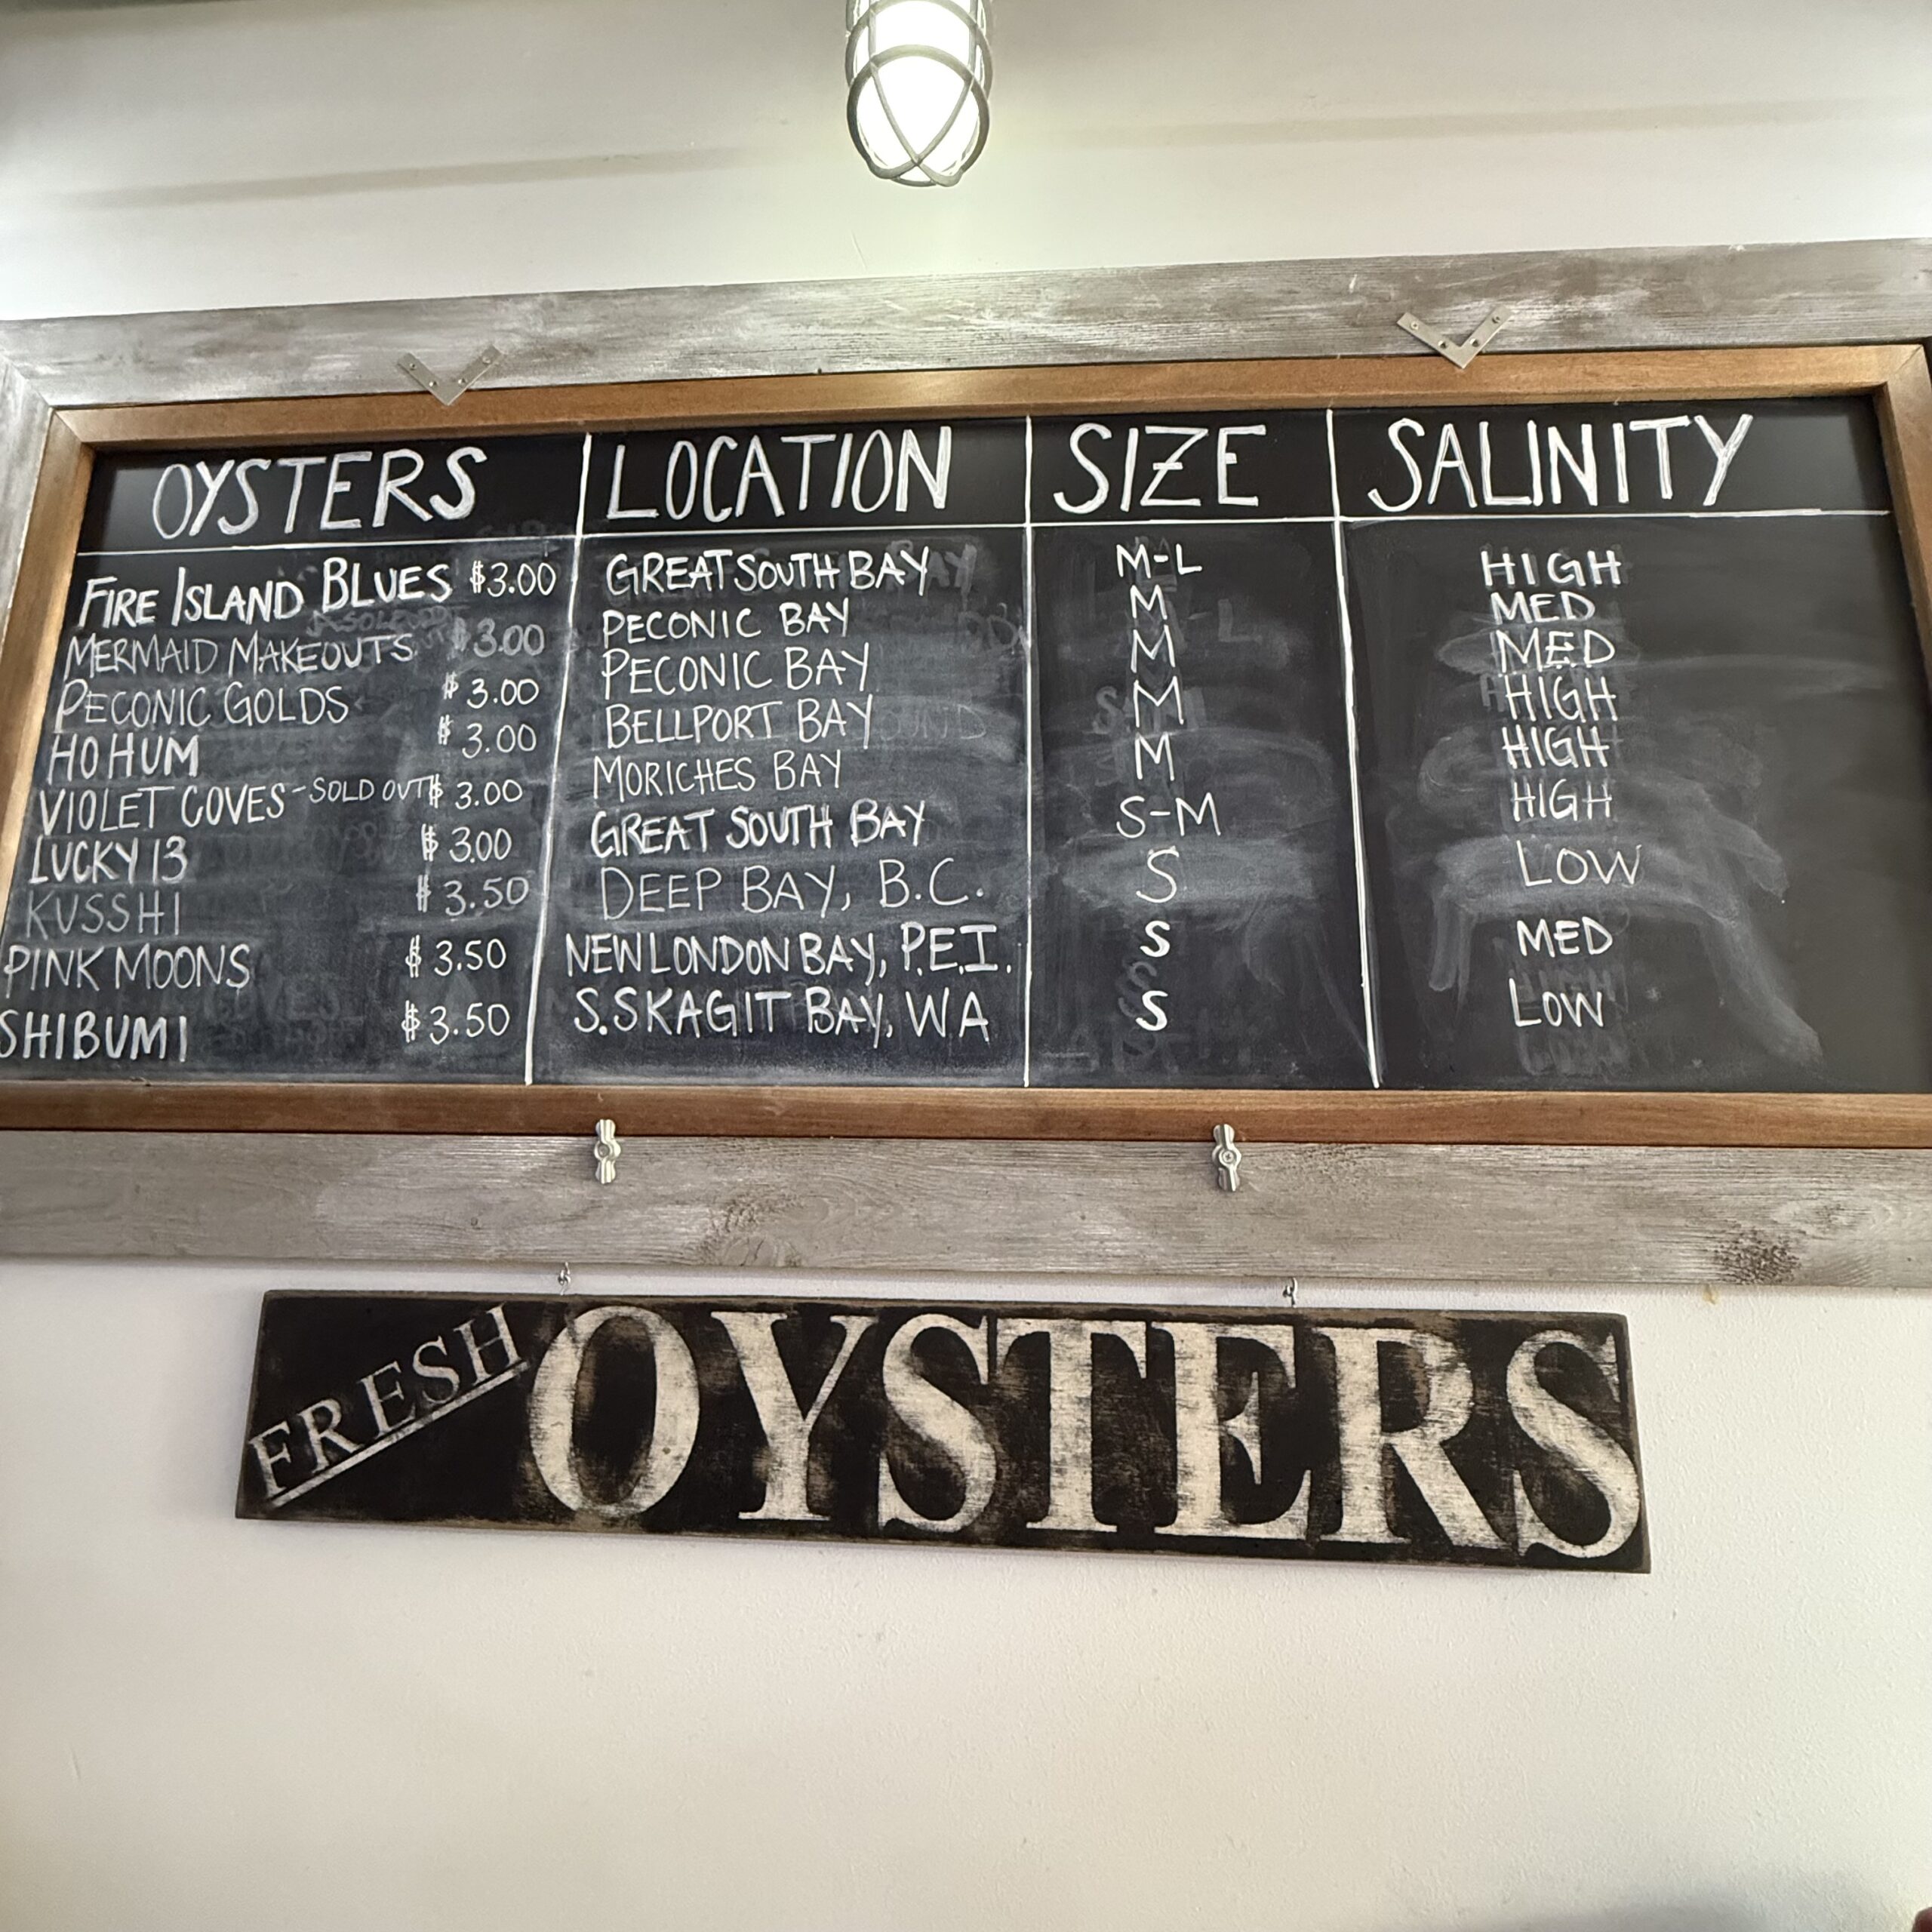 OYSTERS LOCATION SIZE SALINITY
FIRE ISLAND BLUES $3.00 GREAT SOUTH BAY M-L HIGH
MERMAID MAKEOUTS $3.00 PECONIC BAY M MED
PECONIC GOLDS $3.00 PECONIC BAY M MED
HO HUM $3.00 BELLPORT BAY M HIGH
VIOLET COVES - SOLD OUT $3.00 MORICHES BAY M HIGH
LUCKY 13 $3.00 GREAT SOUTH BAY S-M HIGH
KUSSHI $3.50 DEEP BAY, B.C. S LOW
PINK MOONS $3.50 NEW LONDON BAY, P.E.I. S MED
SHIBUMI $3.50 S. SKAGIT BAY, WA S LOW
FRESH OYSTERS